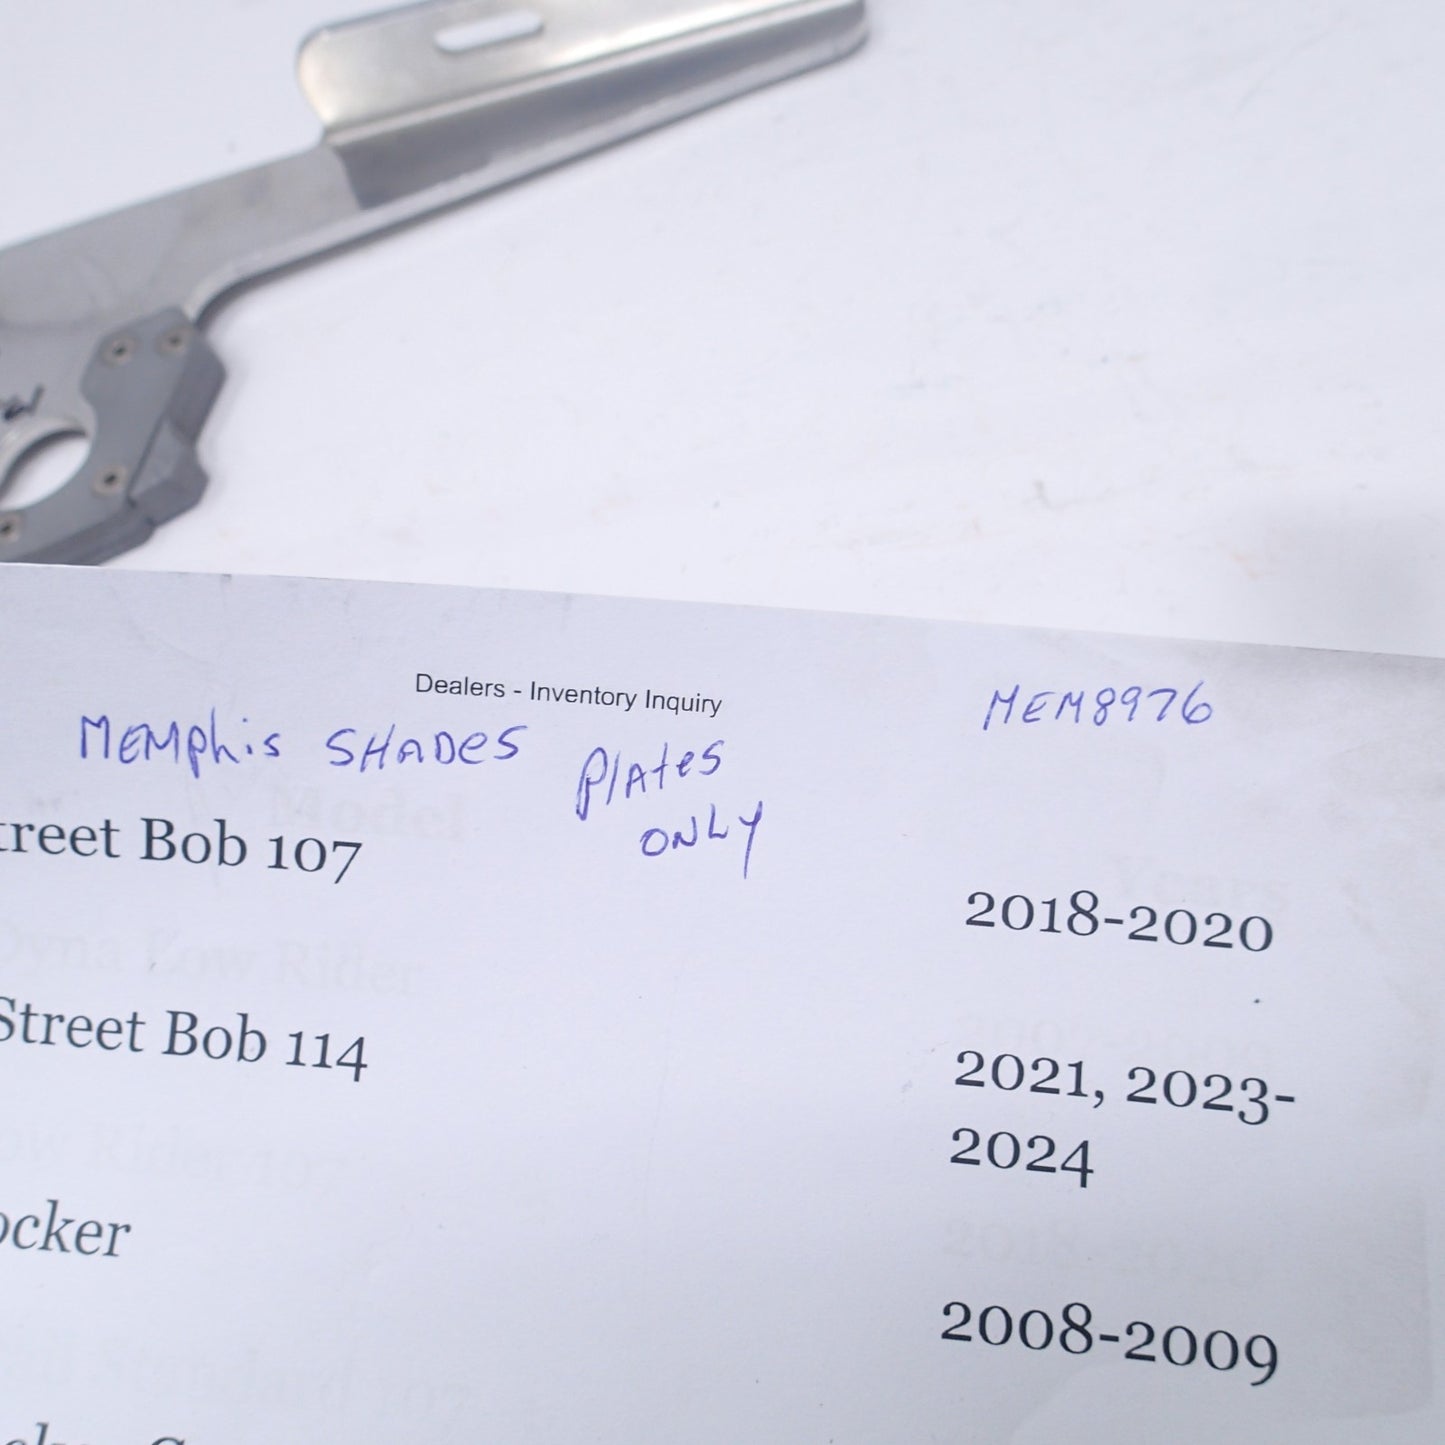 Dealers - Inventory Inquiry
MEMPhis SHADES PlAtes ONLY
MEM8976
treet Bob 107
2018-2020
Street Bob 114
2021, 2023-
2024
ocker
2008-2009